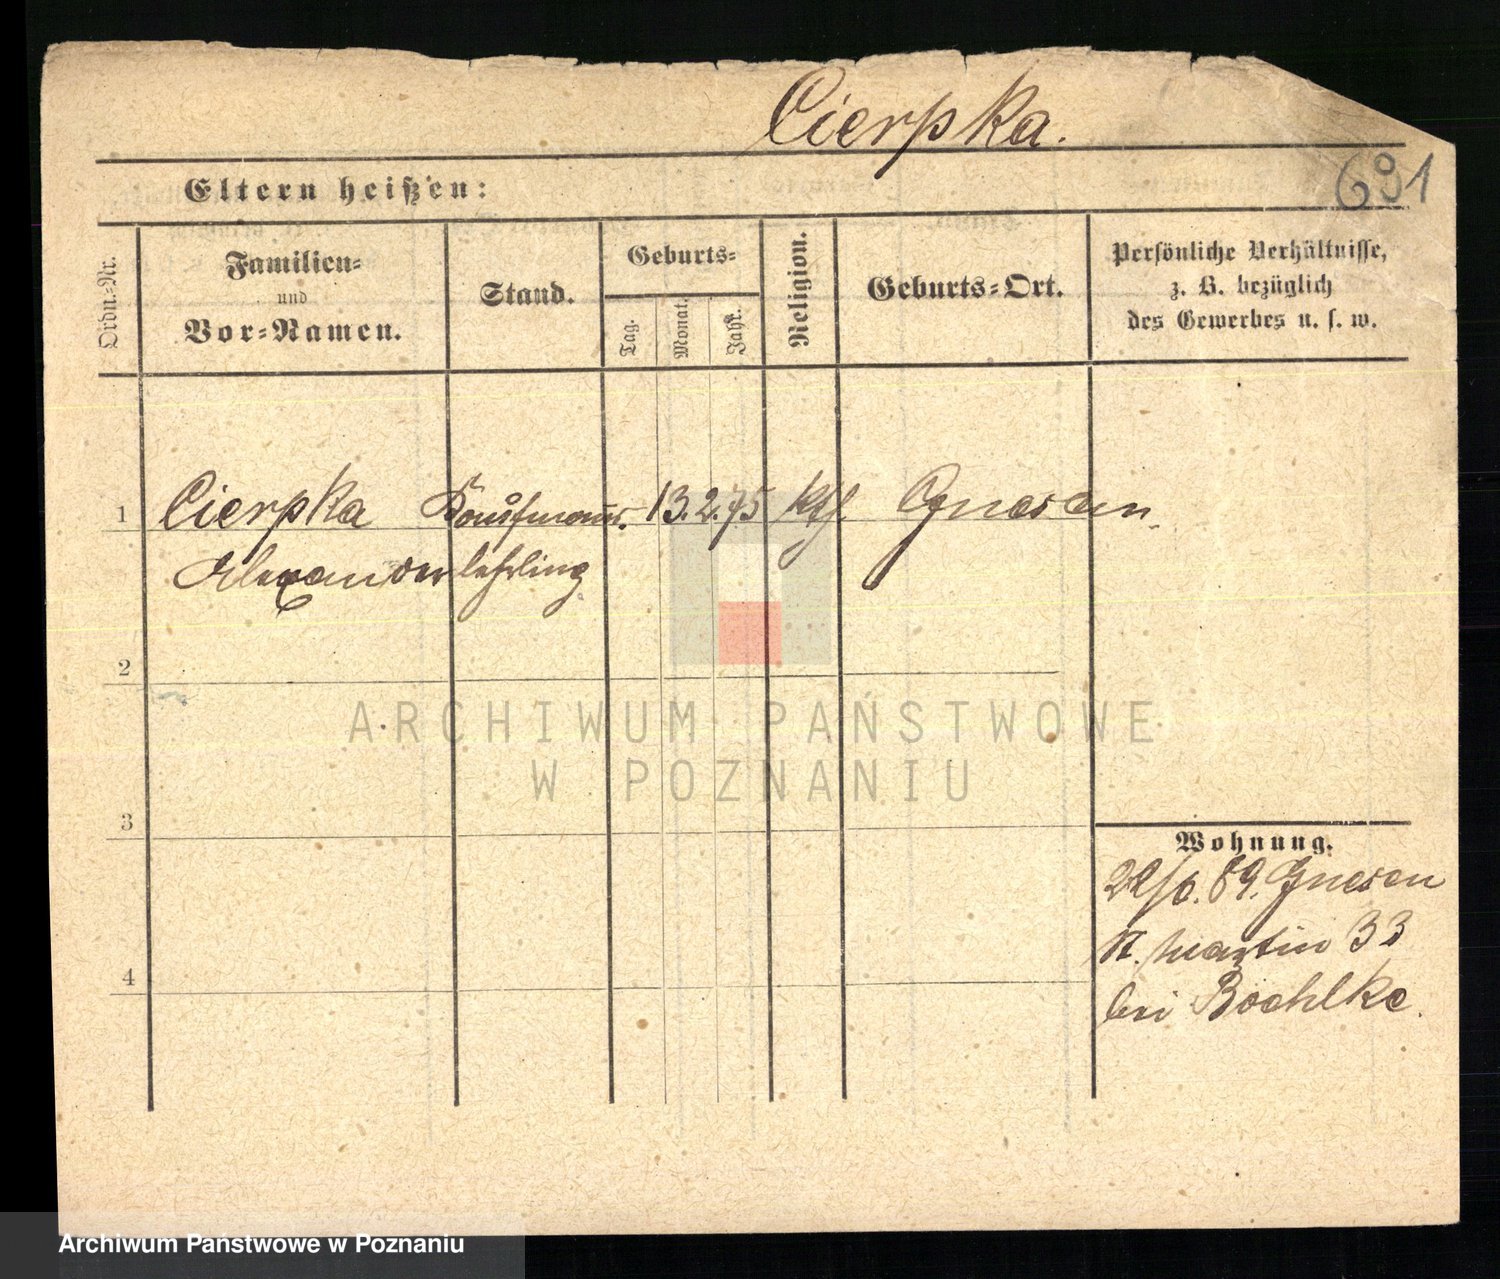 Cierpka.
691
Eltern heißen:
Ordn.-Nr.
Familien-
und
Vor-Namen.
Stand.
Geburts-
Tag.
Monat.
Jahr.
Religion.
Geburts-Ort.
Persönliche Verhältnisse,
z. B. bezüglich
des Gewerbes u. s. w.
1 Cierpka Kaufmanns. 13. 2. 75 kth. Gnesen.
Alexander lehrling
2
3
4
Wohnung.
22/6. 89. Gnesen
St. Martin 33
bei Boehlke.
ARCHIWUM PAŃSTWOWE
W POZNANIU
Archiwum Państwowe w Poznaniu